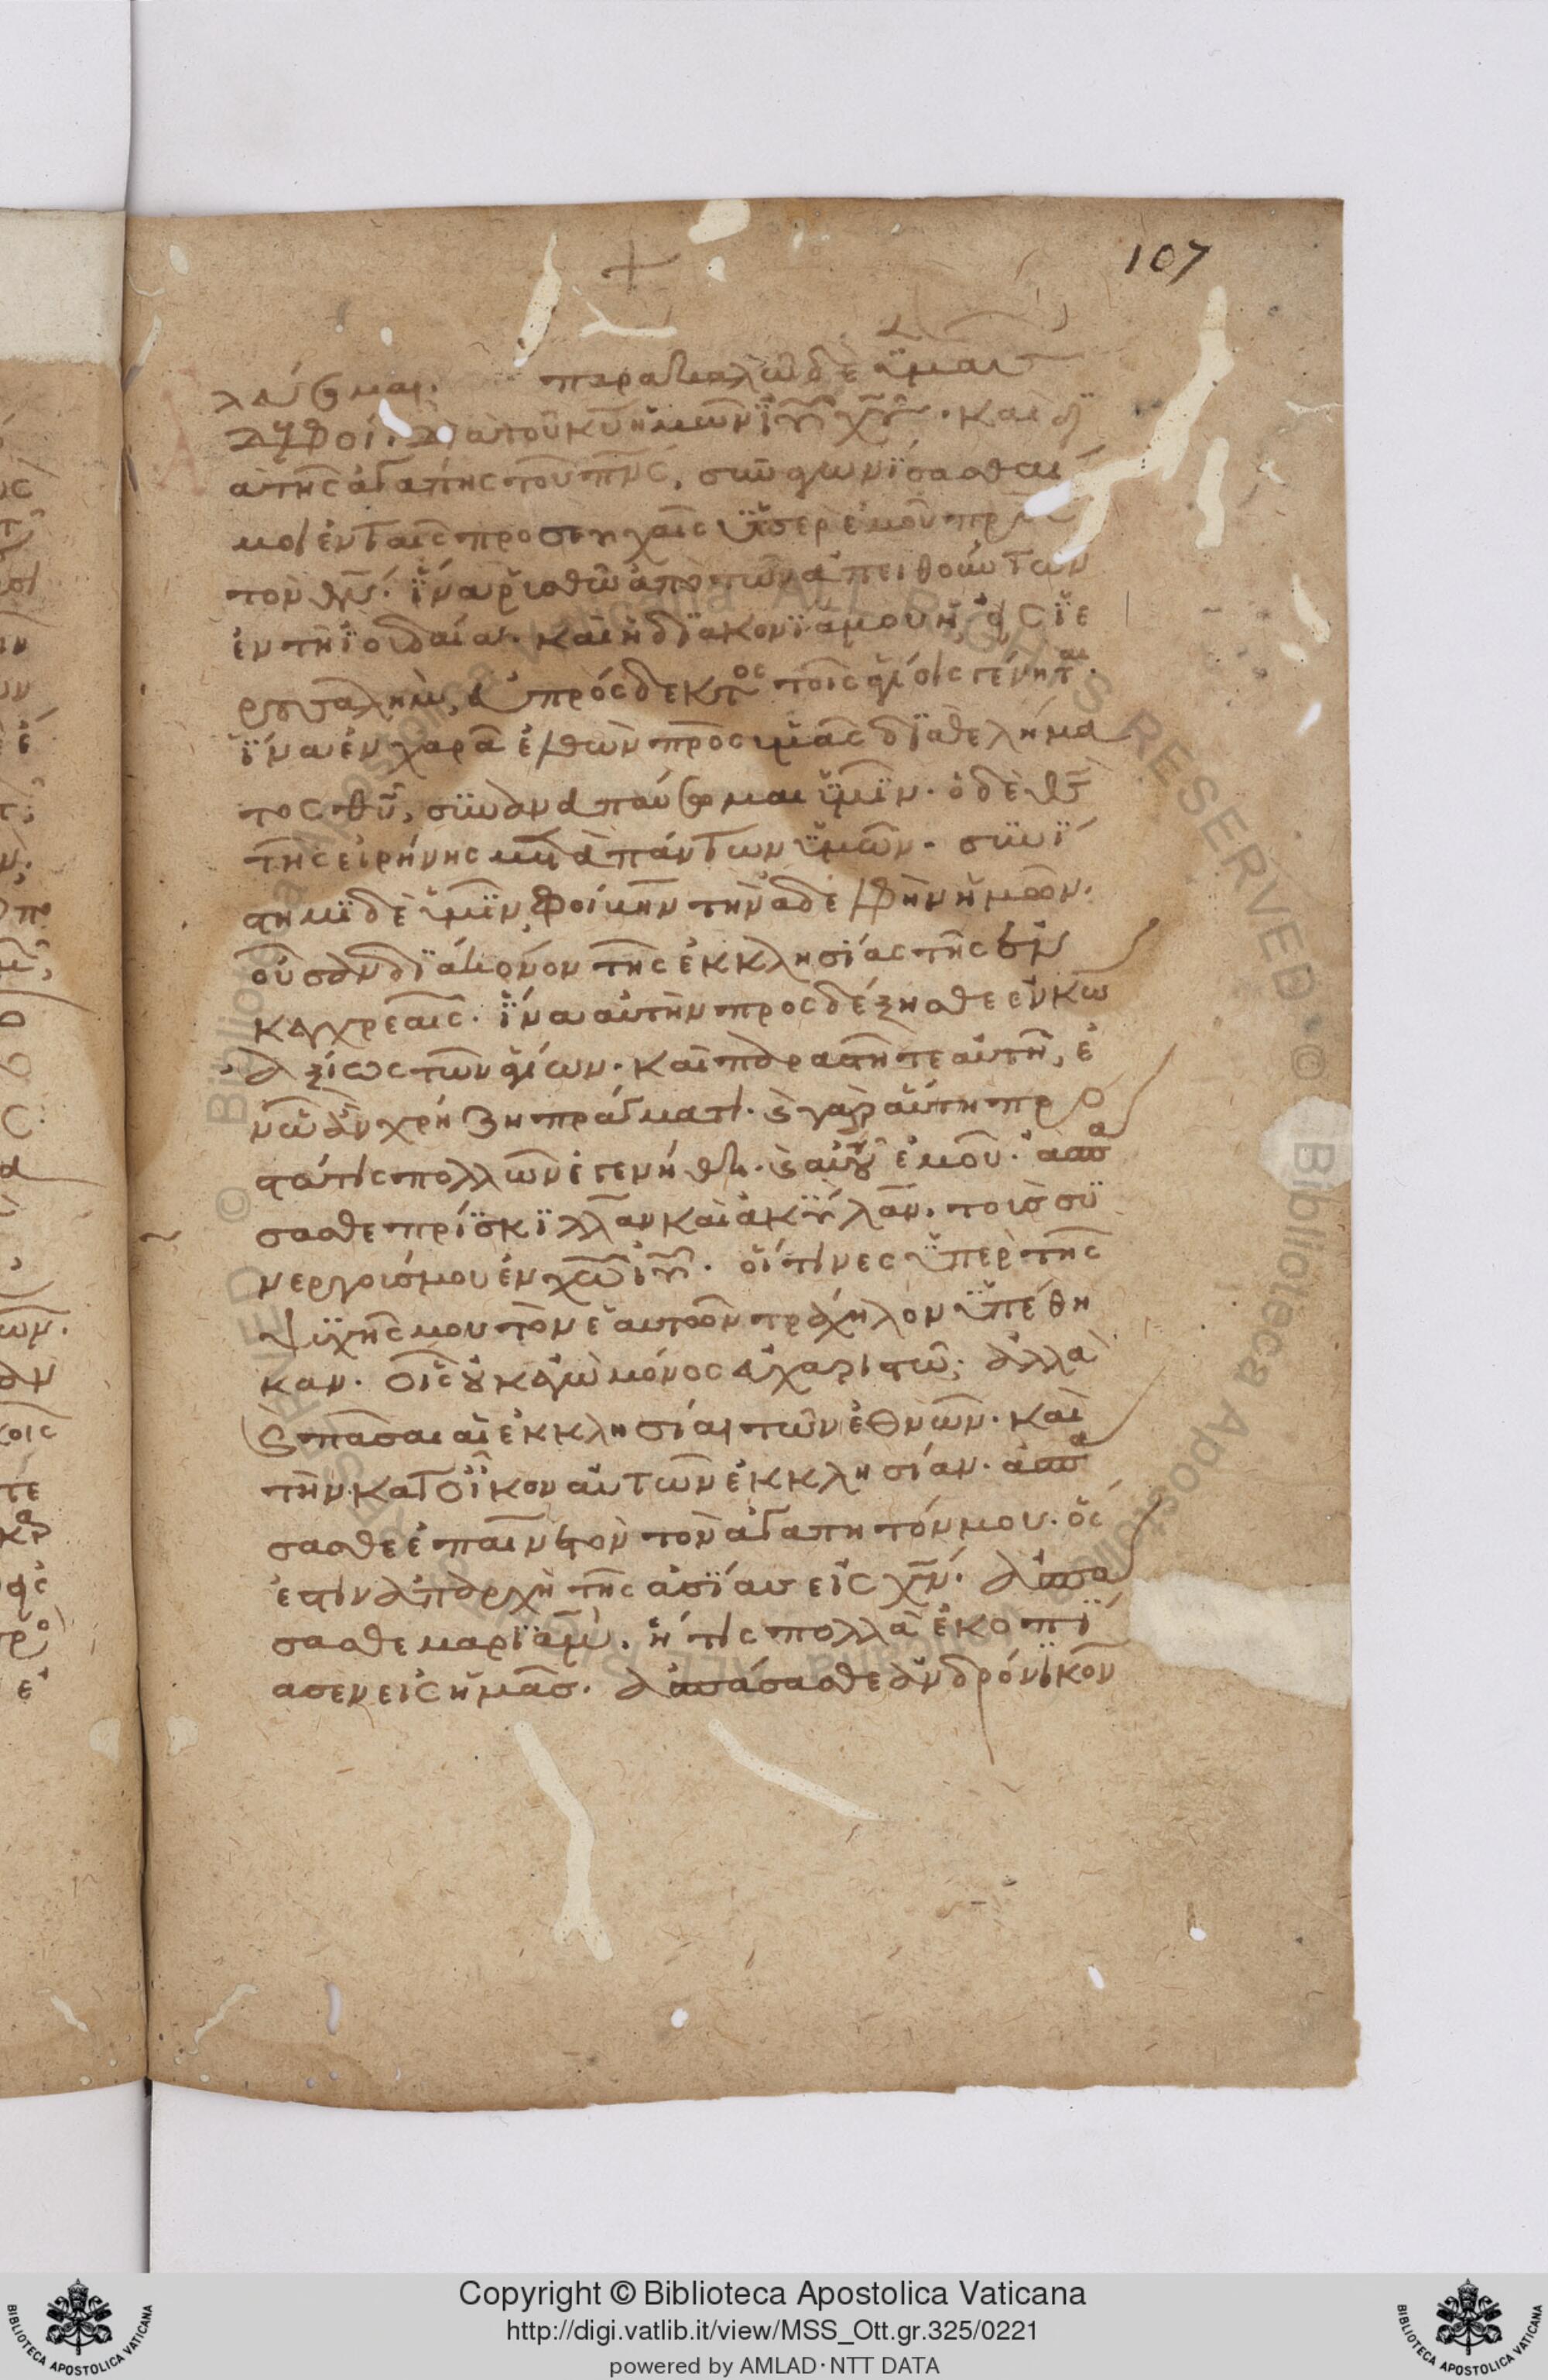 107
λεύσομαι. παρακαλῶ δὲ ὑμᾶς
ἀδελφοί. διὰ τοῦ κυ ἡμῶν ϊυ χυ. καὶ δι
ὰ τῆς ἀγάπης τοῦ πνς, συναγωνίσασθαί
μοι ἐν ταῖς προσευχαῖς ὑπὲρ ἐμοῦ πρὸς
τὸν θν. ἵνα ῥυσθῶ ἀπὸ τῶν ἀπειθούντων
ἐν τῆ ϊουδαία. καὶ ἡ διακονία μου ἡ εἰς ϊε
ρουσαλὴμ, εὐπρόσδεκτος τοῖς ἁγίοις γένηται.
ἵνα ἐν χαρᾶ ἔλθω πρὸς ὑμᾶς διὰ θελήμα
τος θυ, συναναπαύσομαι ὑμῖν. ὁ δὲ θς
τῆς εἰρήνης μετὰ πάντων ὑμῶν. συνί
στημι δὲ ὑμῖν φοίβην τὴν ἀδελφὴν ἡμῶν.
οὖσαν διάκονον τῆς ἐκκλησίας τῆς ἐν
κεγχρεαῖς. ἵνα αὐτὴν προσδέξησθε ἐν κω
ἀξίως τῶν ἁγίων. καὶ παραστῆτε αὐτῆ, ἐ
ν ὧ ἂν χρήζη πράγματι. καὶ γὰρ αὕτη προ
στάτις πολλῶν ἐγενήθη. καὶ αὐτοῦ ἐμοῦ. ἀσπά
σασθε πρίσκιλλαν καὶ ἀκύλαν. τοὺς συ
νεργούς μου ἐν χω ιυ. οἵτινες ὑπὲρ τῆς
ψυχῆς μου τὸν ἑαυτῶν τράχηλον ὑπέθη
καν. οἷς οὐκ ἐγὼ μόνος εὐχαριστῶ, ἀλλὰ
καὶ πᾶσαι αἱ ἐκκλησίαι τῶν ἐθνῶν. καὶ
τὴν κατ οἶκον αὐτῶν ἐκκλησίαν. ἀσπά
σασθε ἐπαίνετον τὸν ἀγαπητόν μου. ὅς
ἐστιν ἀπαρχὴ τῆς ἀσίας εἰς χν. ἀσπά
σασθε μαριὰμ. ἥτις πολλὰ ἐκοπί
ασεν εἰς ἡμᾶς. ἀσπάσασθε ἀνδρόνικον
Copyright © Biblioteca Apostolica Vaticana
http://digi.vatlib.it/view/MSS_Ott.gr.325/0221
powered by AMLAD·NTT DATA